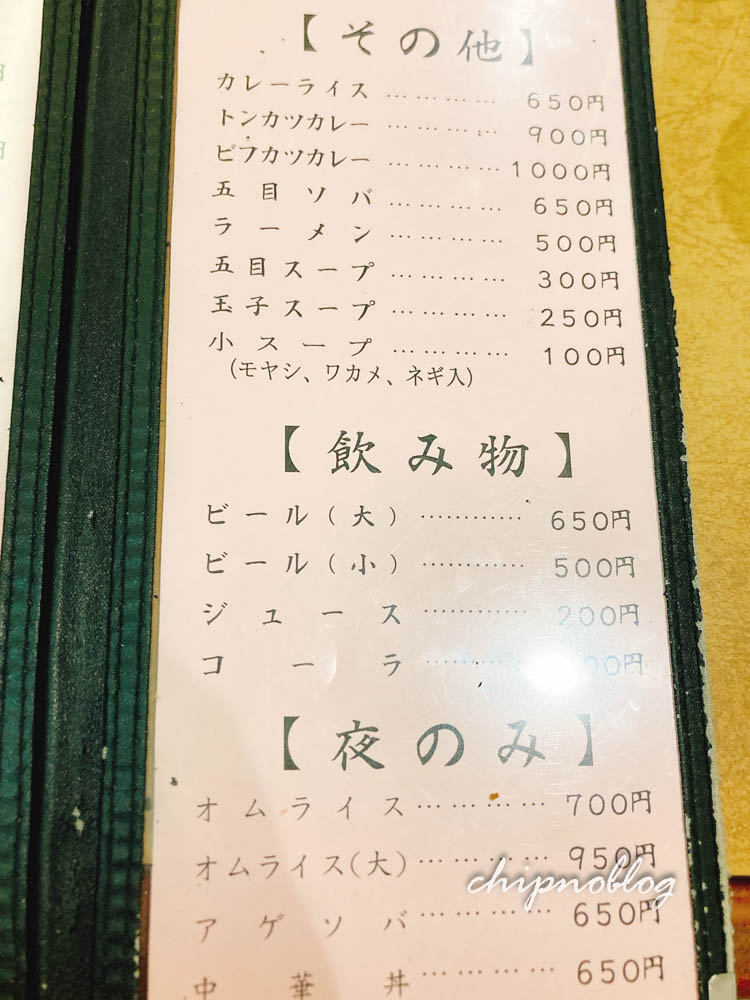 【その他】
カレーライス ………… 650円
トンカツカレー ………… 900円
ビフカツカレー ………… 1000円
五目ソバ ………… 650円
ラーメン ………… 500円
五目スープ ………… 300円
玉子スープ ………… 250円
小スープ ………… 100円
(モヤシ、ワカメ、ネギ入)
【飲み物】
ビール(大) ………… 650円
ビール(小) ………… 500円
ジュース ………… 200円
コーラ ………… 00円
【夜のみ】
オムライス ………… 700円
オムライス(大) ………… 950円
chipnoblog
アゲソバ ………… 650円
中華丼 ………… 650円